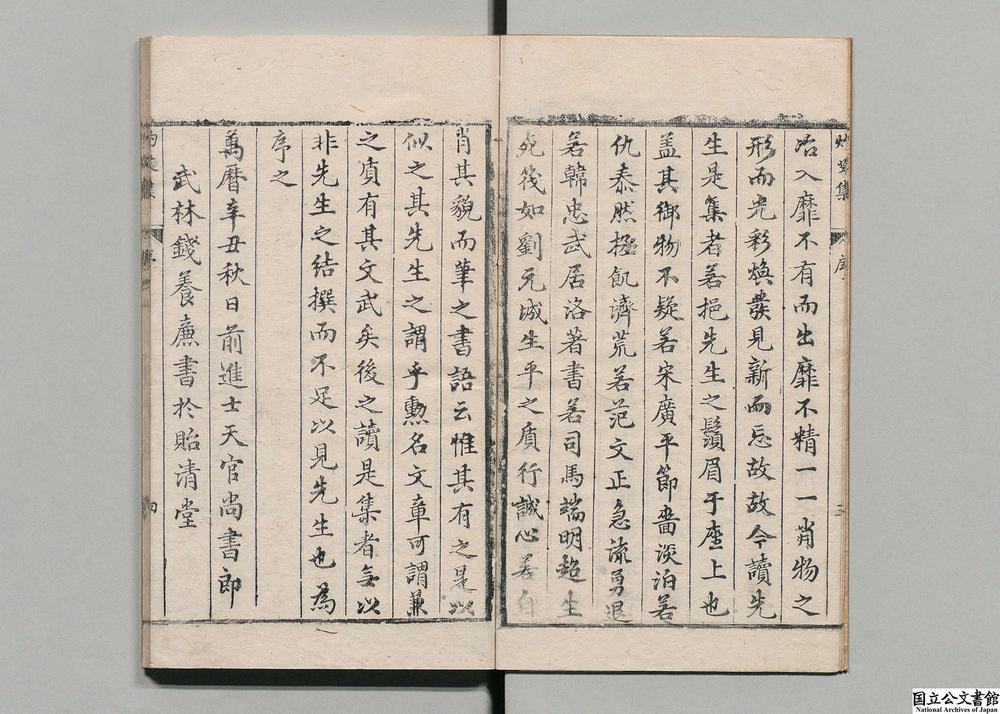 冶入靡不有而出靡不精一一肖物之
形而光彩煥發見新而忘故故今讀先
生是集者若挹先生之鬚眉于座上也
盖其御物不疑若宋廣平節嗇淡泊若
仇泰然拯飢濟荒若范文正急流勇退
若韓忠武居洛著書若司馬端明
死如劉元城生平之質行誠心若
肖其貌而筆之書語云惟其有之是以
似之其先生之謂乎勲名文章可謂兼
之貭有其文武矣後之讀是集者無以
非先生之結撰而不足以見先生也為
序之
萬曆辛丑秋日前進士天官尚書郎
武林錢養廉書於貽清堂
国立公文書館
National Archives of Japan